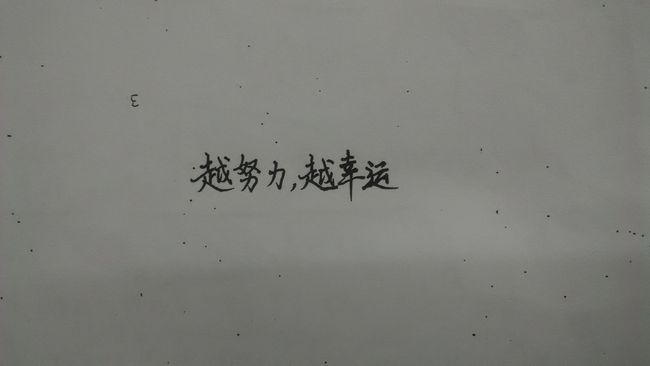 3
越努力,越幸运